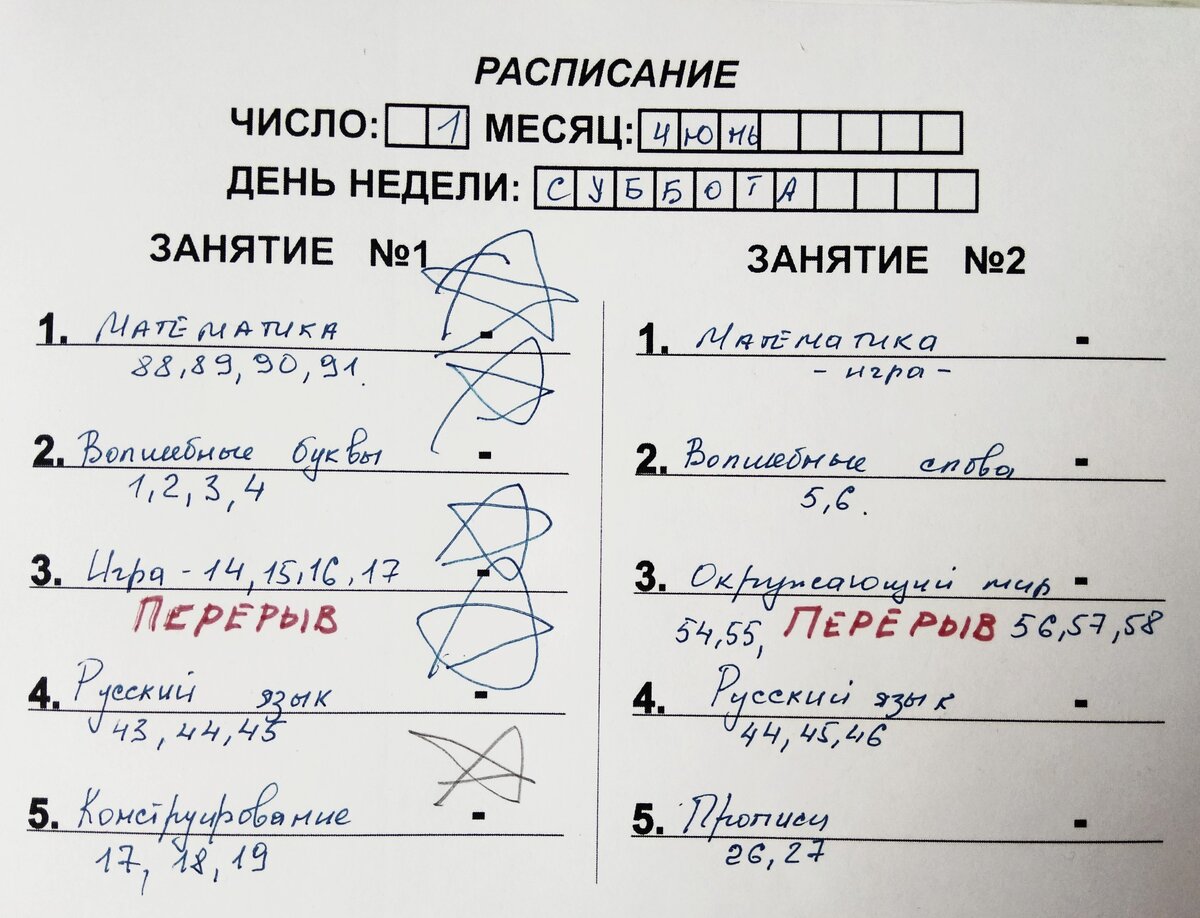 РАСПИСАНИЕ
ЧИСЛО: 1 МЕСЯЦ: Июнь
ДЕНЬ НЕДЕЛИ: СУББОТА
ЗАНЯТИЕ №1
1. Математика -
88,89,90,91.
2. Волшебные буквы -
1,2,3,4
3. Игра - 14,15,16,17 -
ПЕРЕРЫВ
4. Русский язык -
43,44,45
5. Конструирование -
17, 18,19
ЗАНЯТИЕ №2
1. Математика -
- игра -
2. Волшебные слова -
5,6.
3. Окружающий мир -
54,55, ПЕРЕРЫВ 56,57,58
4. Русский язык -
44,45,46
5. Прописи -
26,27